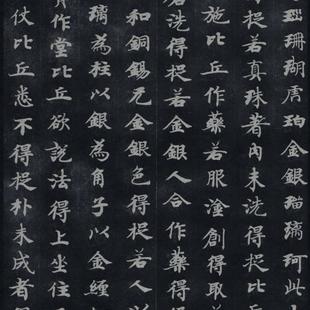 珊瑚虎珀金銀瑠璃珂此
捉若真珠著內未洗得捉比
施比丘作藥若服塗創得取
洗得捉若金銀人合作藥得
和銅錫金銀色得捉若人以
璃為柱以銀為角子以金纏
作堂比丘欲說法得上坐住
仗比丘悉不得捉朴未成者